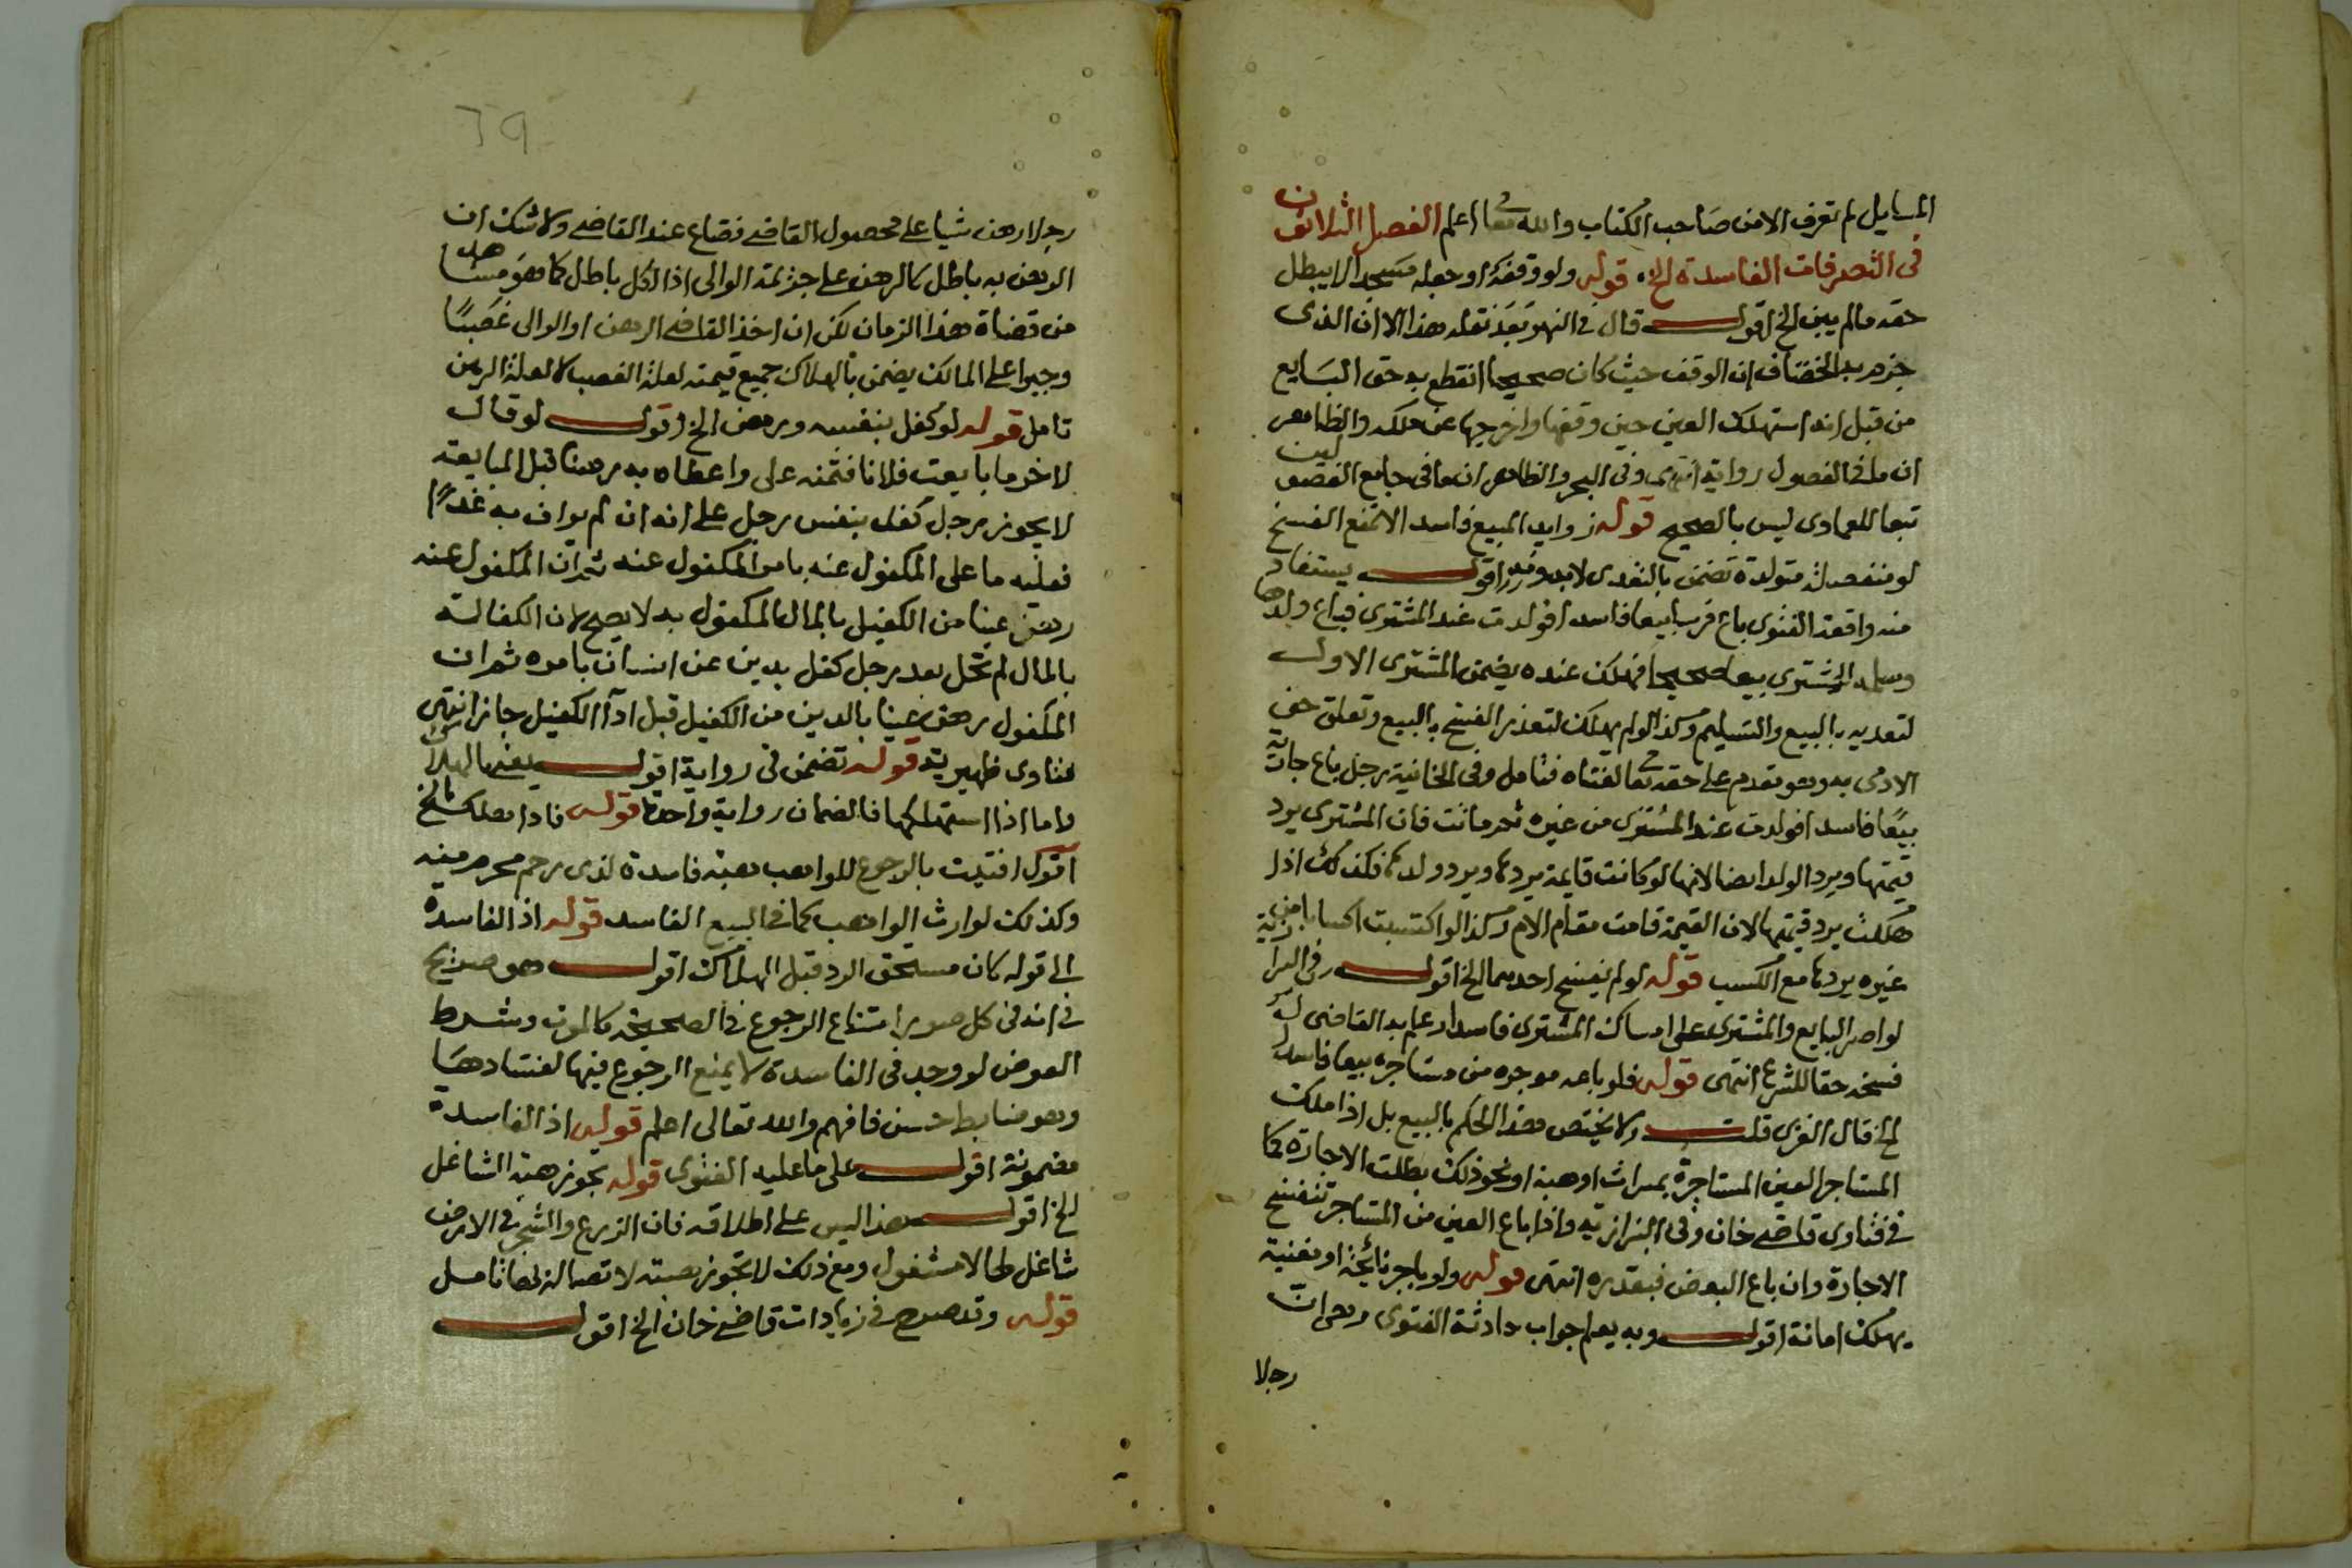 المسايل لم تعرف الا من صاحب الكتاب والله تعالى اعلم الفصل الثلاثون
في التصرفات الفاسدة الخ قوله ولو وقفه او جعله مسجدا لا يبطل
حقه ما لم يبن الخ اقول قال في النهر بعد نقله هذا الا ان الذي
جزم به الخصاف ان الوقف حيث كان صحيحا انقطع به حق البايع
من قبل انه استهلك العين حين وقفها واخرجها عن ملكه والظاهر
ان ما في الفصول رواية انتهى وفي البحر والظاهر ان ما في جامع الفصولين
تبعا للعمادي ليس بالصحيح قوله زوايد المبيع فاسدا لا تمنع الفسخ
لو منفصلة متولدة تضمن بالتعدى لا بدونه اقول يستفاد
منه واقعة الفتوى باع فرسا بيعا فاسدا فولدت عند المشتري فباع ولدها
وسلمه المشتري بيعا صحيحا فهلك عنده يضمن المشترى الاول
لتعديه بالبيع والتسليم وكذا لو لم يهلك لتعذر الفسخ بالبيع وتعلق حق
الادمى به وهو مقدم على حقه تعالى فتامل وفي الخانية رجل باع جارية
بيعا فاسدا فولدت عند المشترى من غيره ثم ماتت فان المشترى يرد
قيمتها ويرد الولد ايضا لانها لو كانت قايمة يردها ويرد ولدها فكذلك اذا
هلكت يرد قيمتها لان القيمة قامت مقام الام وكذا لو اكتسبت اكسابا من
غيره يردها مع الكسب قوله لو لم يفسخ احدهما الخ اقول وفي البزازية
لو اصر البايع والمشترى على امساك المشترى فاسدا وعلم به القاضى له
فسخه حقا للشرع انتهى قوله فلو باعه موجره من مستاجره بيعا فاسدا
الخ قال الغزى قلت ولا يختص هذا الحكم بالبيع بل اذا ملك
المستاجر العين المستاجرة بميراث او هبة او نحو ذلك بطلت الاجارة كما
في فتاوى قاضي خان وفي البزازية واذا باع العين من المستاجر تنفسخ
الاجارة وان باع البعض فبقدره انتهى قوله ولو باجر نائحة او مغنية
يهلك امانة اقول وبه يعلم جواب حادثة الفتوى وهى ان
رجلا
رجلا رهن شيا على محصول القاضي فضاع عند القاضي ولا شك ان
الرهن به باطل كالرهن على جزيمة الوالى اذ الكل باطل كما هو مشاهد
من قضاة هذا الزمان لكن ان اخذ القاضي الرهن او الوالى غصبا
وجبرا على المالك يضمن بالهلاك جميع قيمته لعلة الغصب لا لعلة الرهن
تامل قوله لو كفل بنفسه ورهن الخ اقول لو قال
لاخر ما بايعت فلانا فثمنه على واعطاه به رهنا قبل المبايعة
لا يجوز رجل كفل بنفس رجل على انه ان لم يواف به غدا
فعليه ما على المكفول عنه بامر المكفول عنه ثم ان المكفول عنه
رهن عينا من الكفيل بالمال المكفول به لا يصح لان الكفالة
بالمال لم تحل بعد رجل كفل بدين عن انسان بامره ثم ان
المكفول رهن عينا بالدين من الكفيل قبل ادآ الكفيل جاز انتهى
فتاوى ظهيرية قوله تضمن في رواية اقول يعنى بالهلاك
واما اذا استهلكها فالضمان رواية واحدة قوله فاذا هلك الخ
اقول افتيت بالرجوع للواهب هبة فاسدة لذى رحم محرم منه
وكذلك لوارث الواهب كما في البيع الفاسد قوله اذ الفاسدة
الى قوله كان مستحق الرد قبل الهلاك اقول هو صريح
في انه في كل صور امتناع الرجوع في الصحيحة كالموت وشرط
العوض لو وجد في الفاسدة لا يمنع الرجوع فيها لفسادها
وهو ضابط حسن فافهم والله تعالى اعلم قوله اذ الفاسدة
مضمونة اقول على ما عليه الفتوى قوله تجوز هبة الشاغل
الخ اقول هذا ليس على اطلاقه فان الزرع والشجر في الارض
شاغل لها لا مشغول ومع ذلك لا تجوز هبته لاتصاله بها تامل
قوله وقد صرح في زيادات قاضي خان الخ اقول